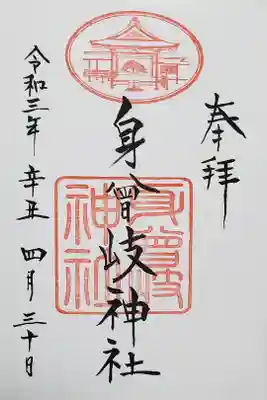 奉拝
身曾岐神社
身曾岐神社
令和三年 辛丑 四月三十日